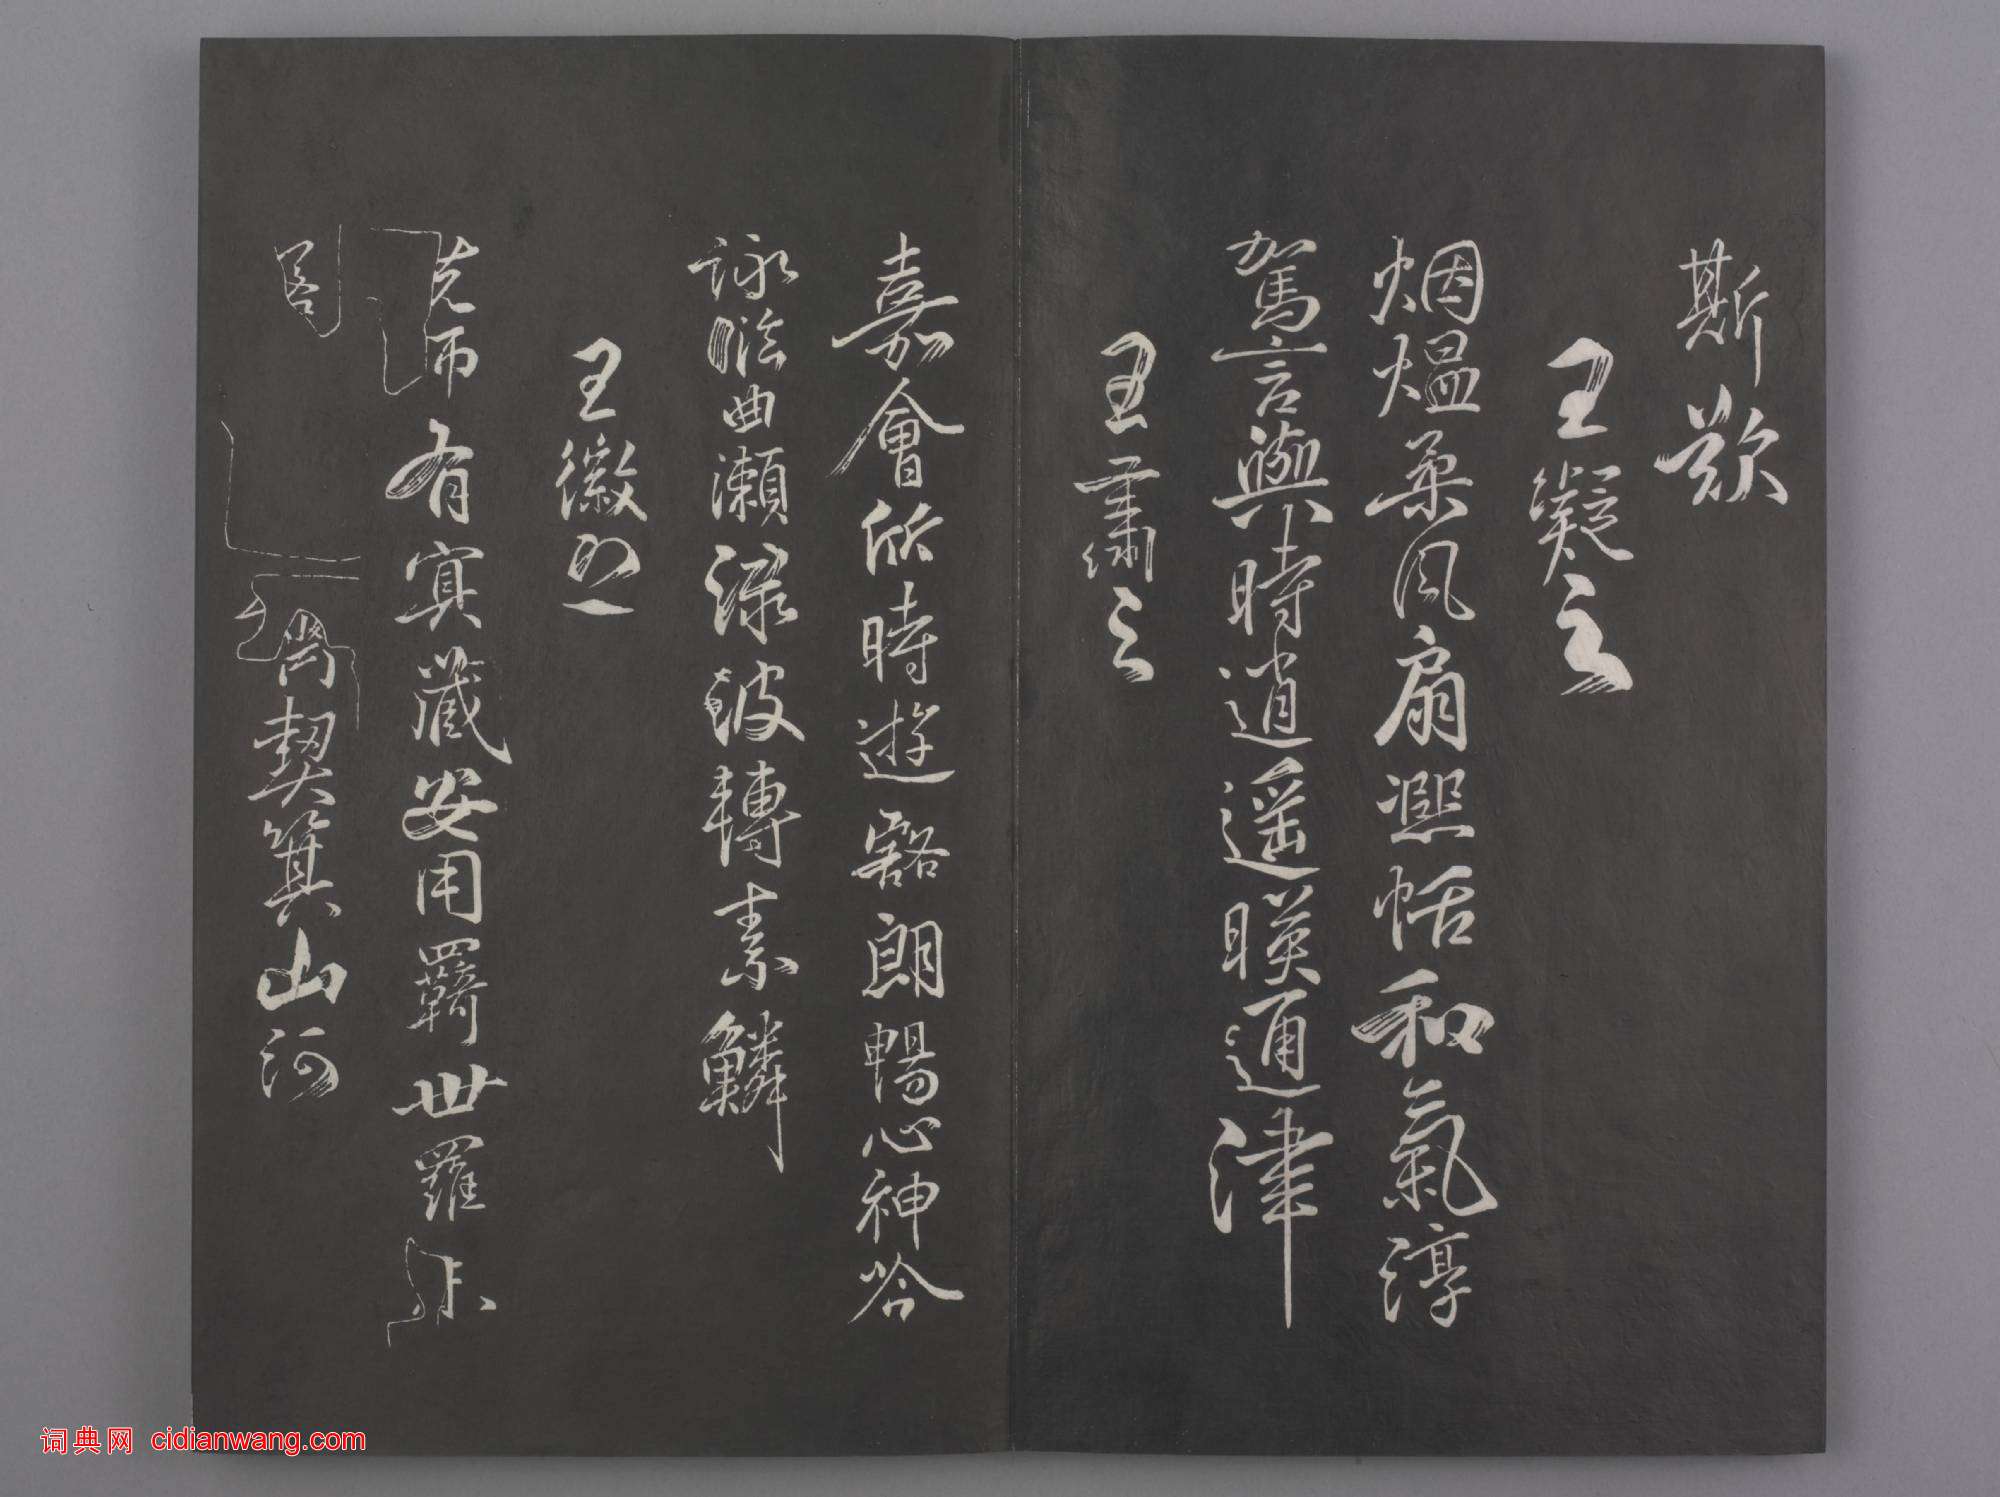 斯歎
王凝之
烟熅柔風扇凞恬和氣淳
駕言與時逍遥暎通津
王肅之
嘉會欣時遊豁朗暢心神吟
詠臨曲瀨渌波轉素鱗
王徽之
先師有冥藏安用羈世羅未
若齊契箕山河
词典网 cidianwang.com